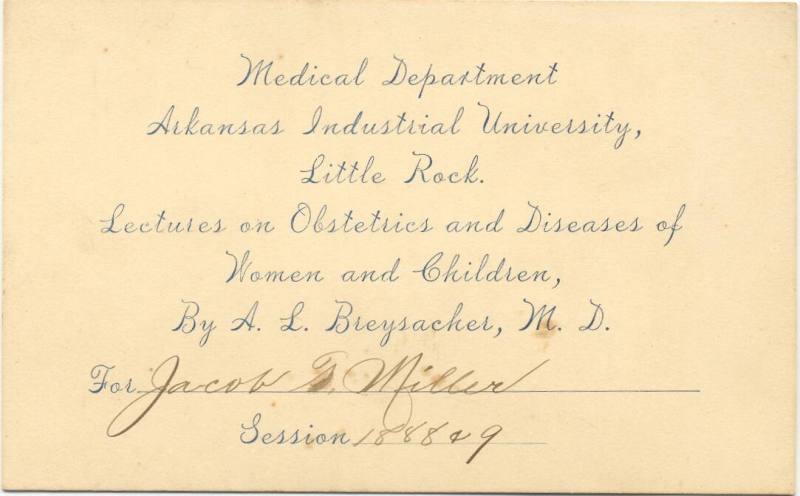 Medical Department
Arkansas Industrial University,
Little Rock.
Lectures on Obstetrics and Diseases of
Women and Children,
By A. L. Breysacher, M. D.
For Jacob Miller
Session 1888 & 9